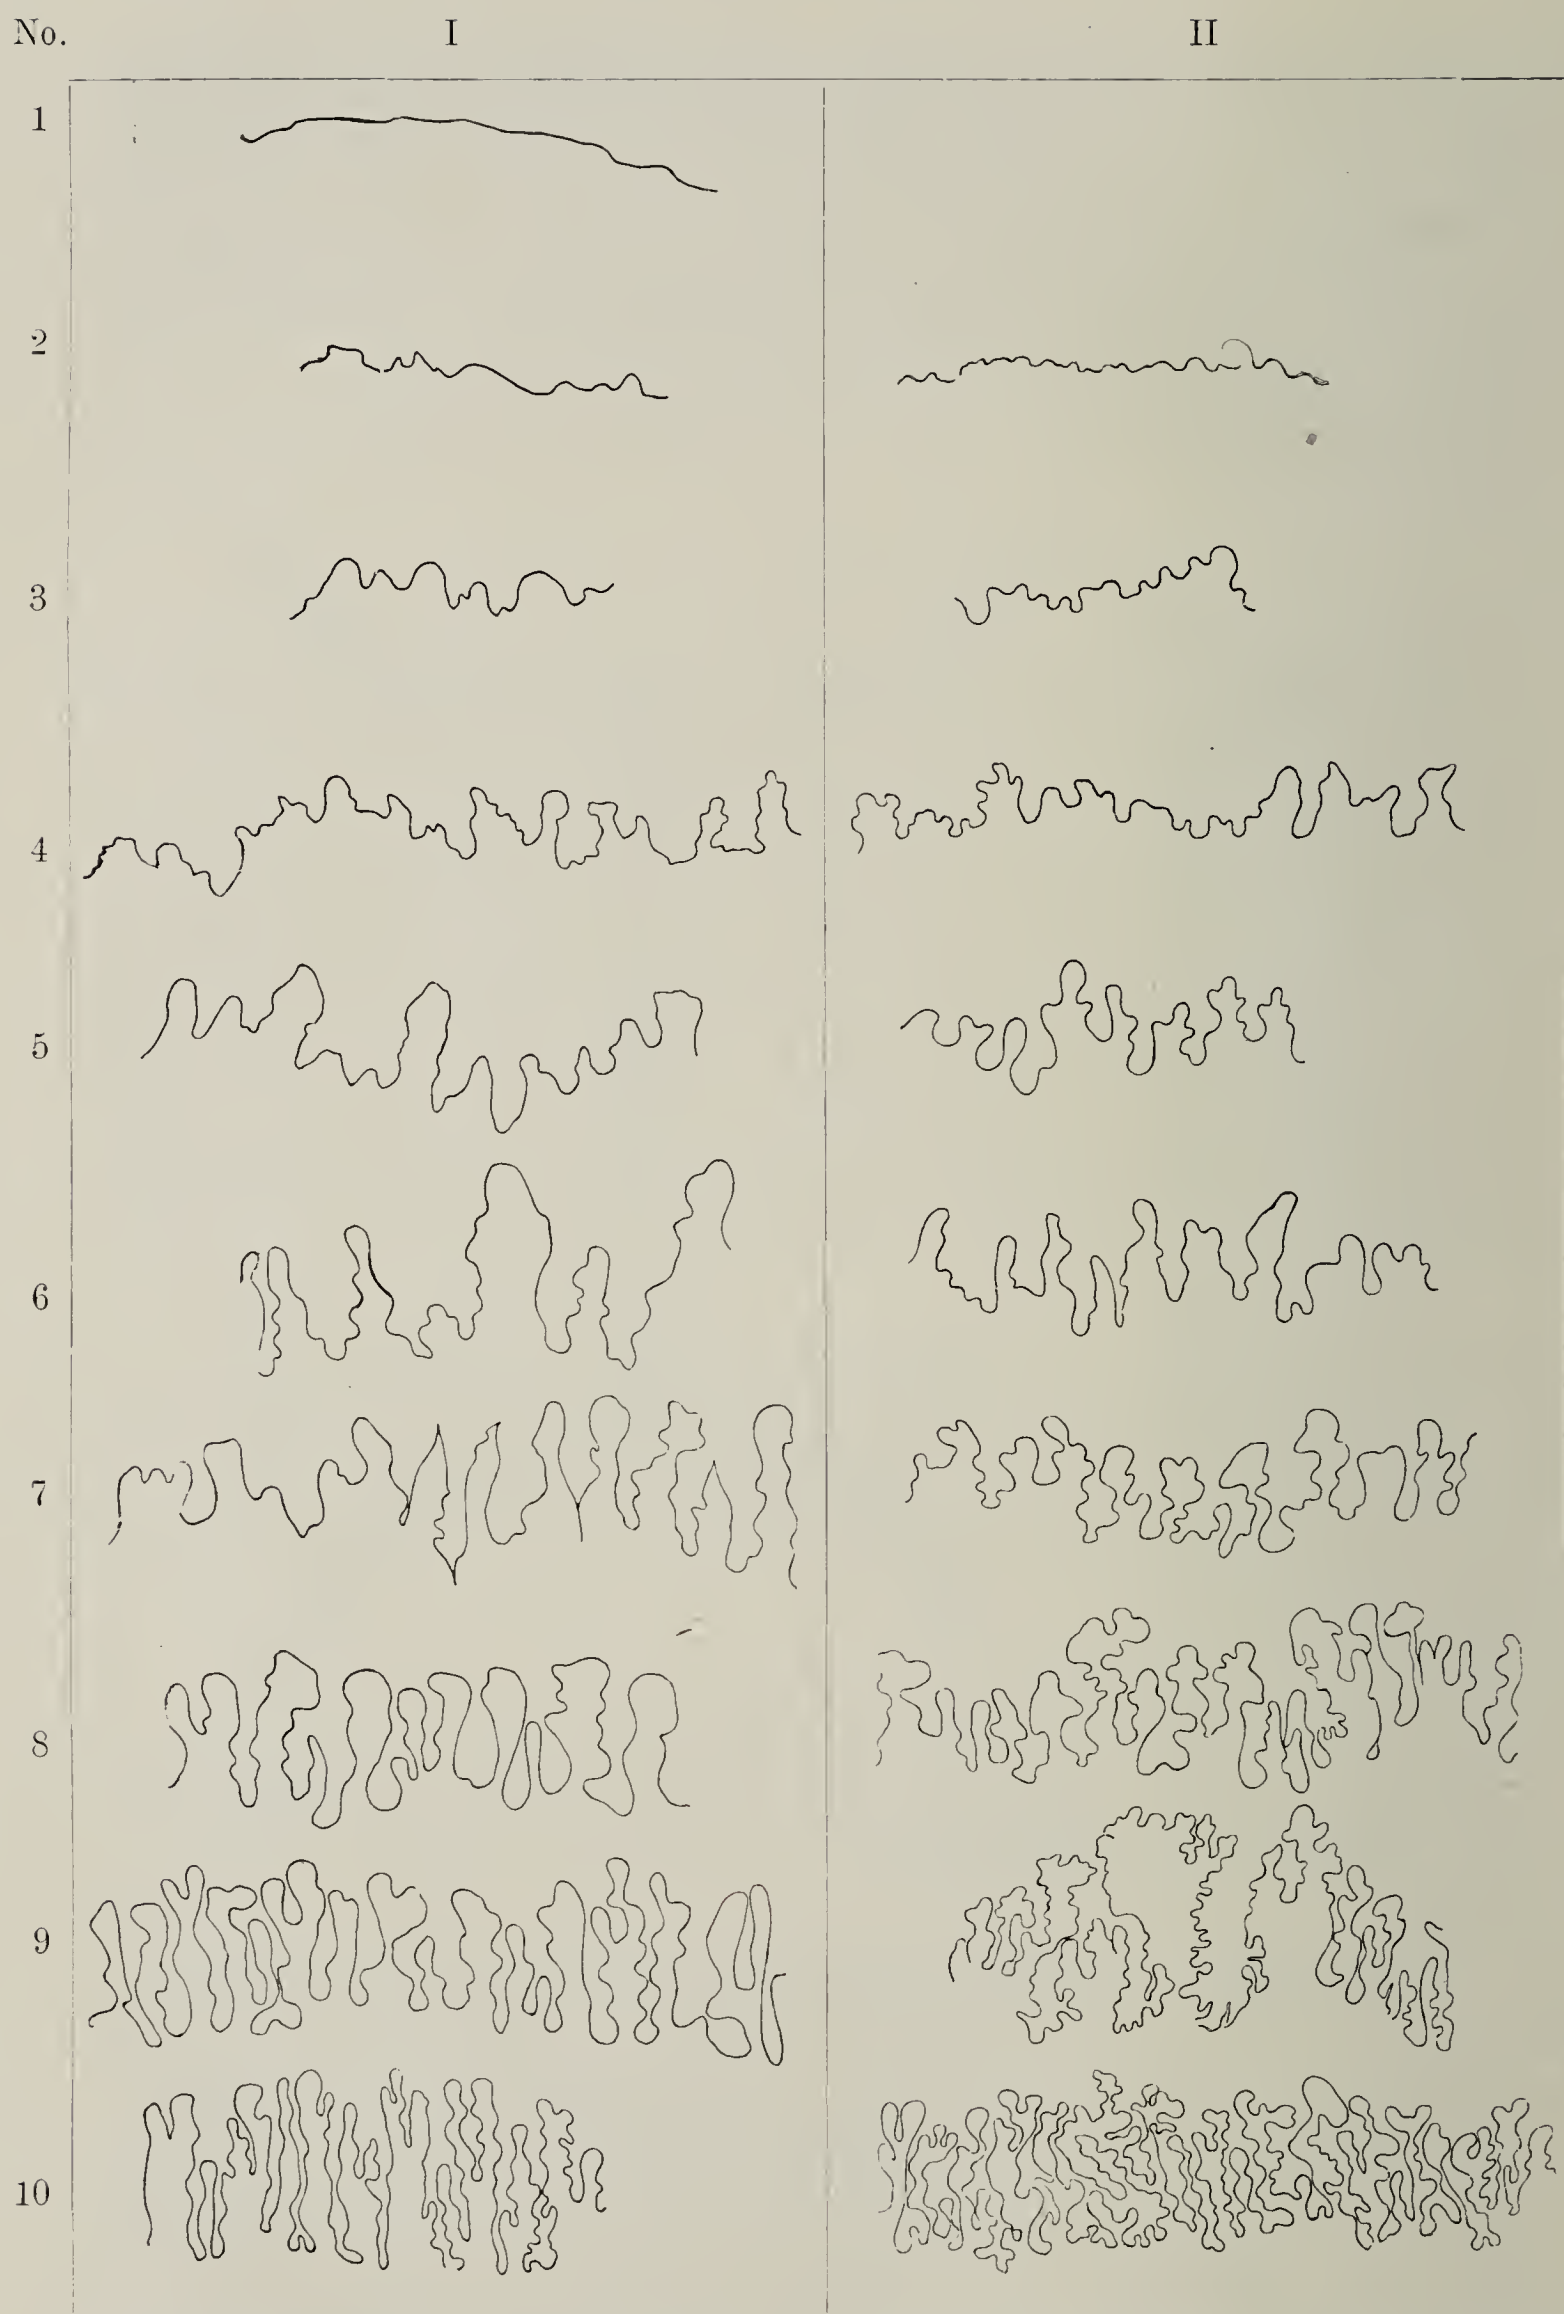 No. I II
1
2
3
4
5
6
7
8
9
10